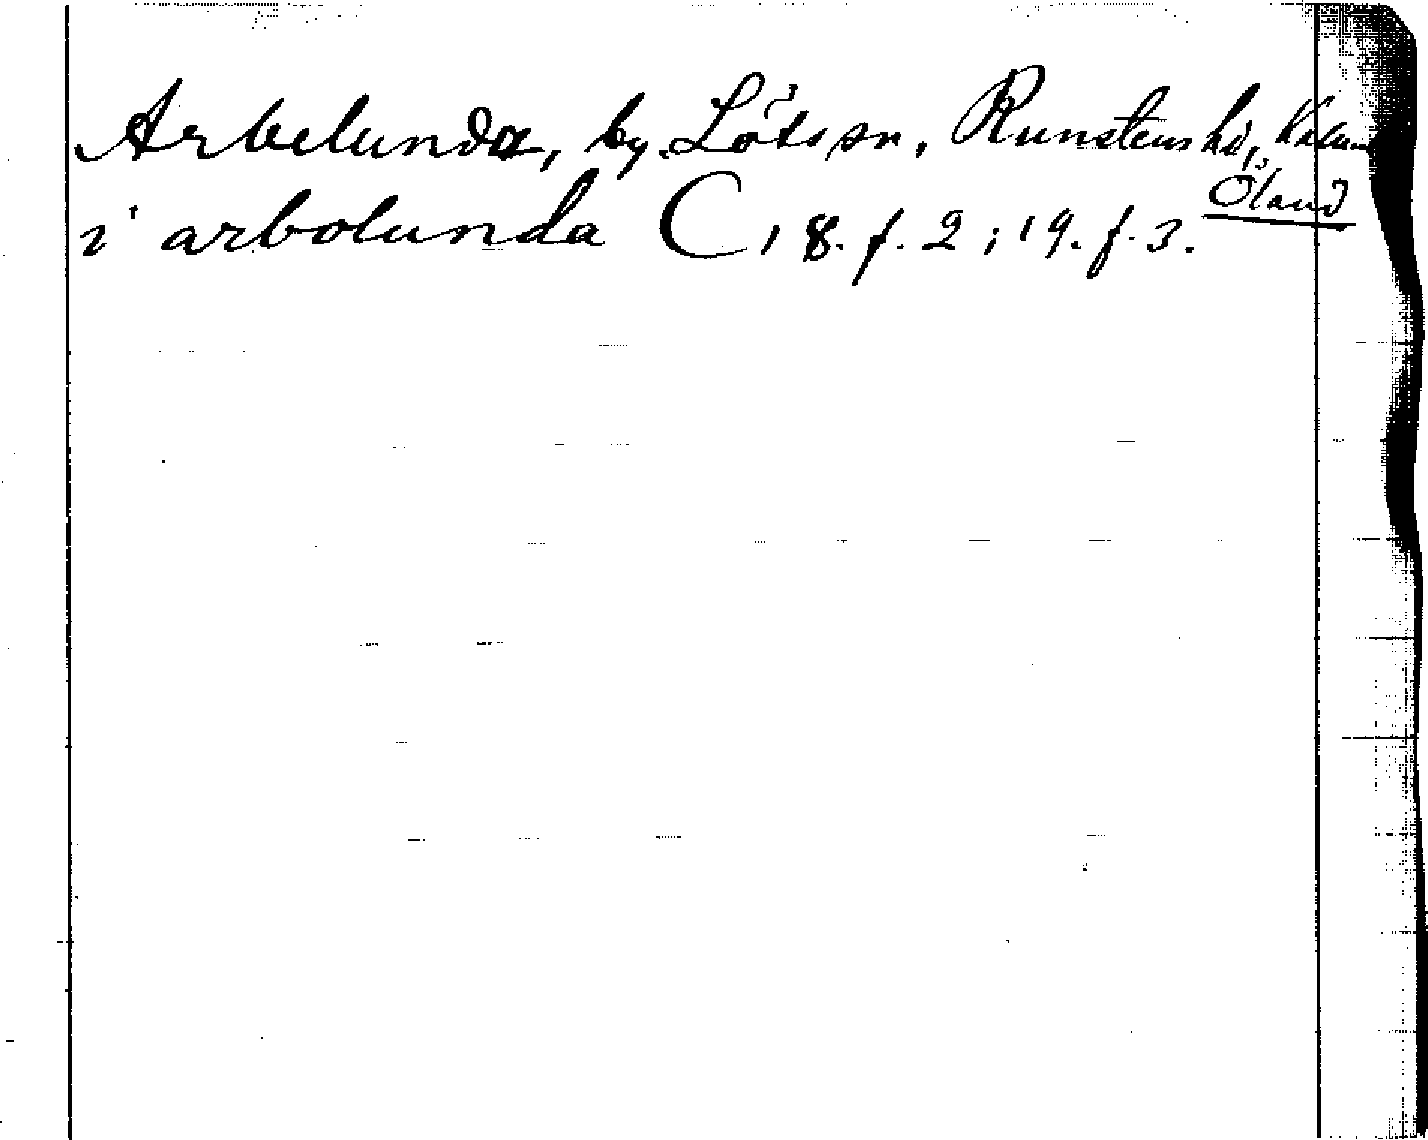 Arbelunda, by. Löts sn, Runstens hd,
Öland
i arbolunda C, 8. f. 2; 19. f. 3.